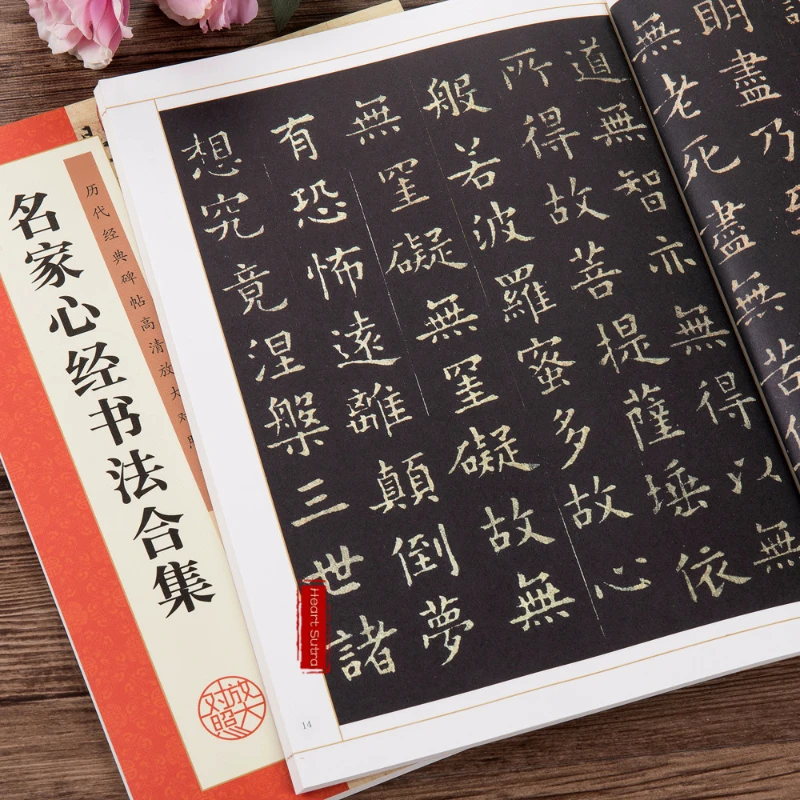 明盡乃
無老死盡無苦
道無智亦無得以無
所得故菩提薩埵依
般若波羅蜜多故心
無罣礙無罣礙故無
有恐怖遠離顛倒夢
想究竟涅槃三世諸
14
Heart Sutra
历代经典碑帖高清放大对
名家心经书法合集
放大
对照